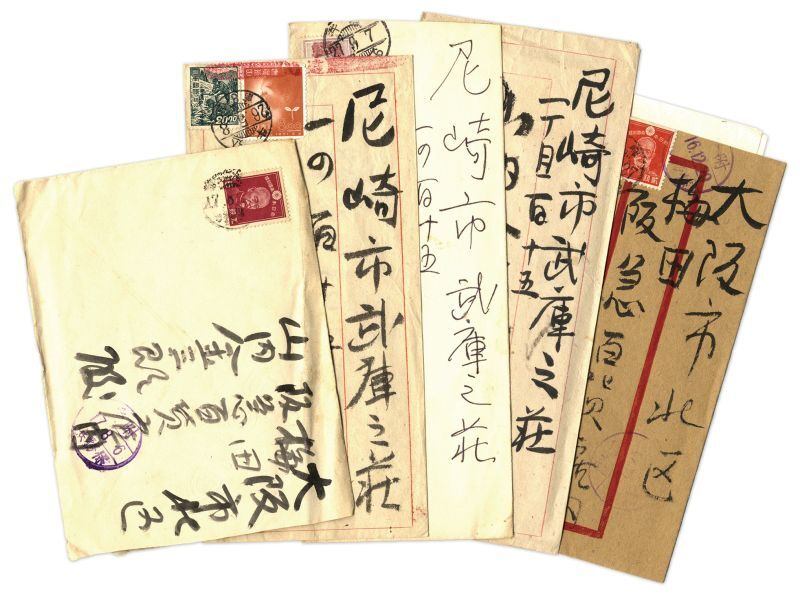 大阪市北区
梅田
阪急百貨店内
山内金三郎様
尼崎市武庫之荘
一の百十
20.00
尼崎市武庫之荘
一の百十五
27
7
尼崎市武庫之荘
一丁目百十五
大阪市北区
梅田
阪急百貨店内
16.12